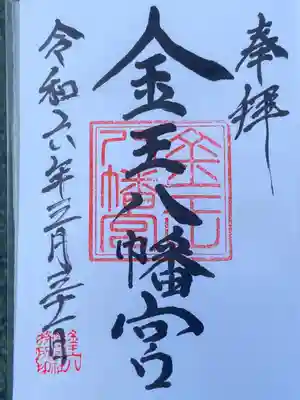 奉拝
金王八幡宮
金王八幡宮
令和六年三月三十一日